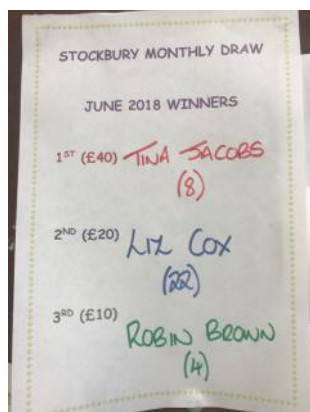 STOCKBURY MONTHLY DRAW
JUNE 2018 WINNERS
1ST (£40) TINA JACOBS
(8)
2ND (£20) LIZ COX
(22)
3RD (£10)
ROBIN BROWN
(4)